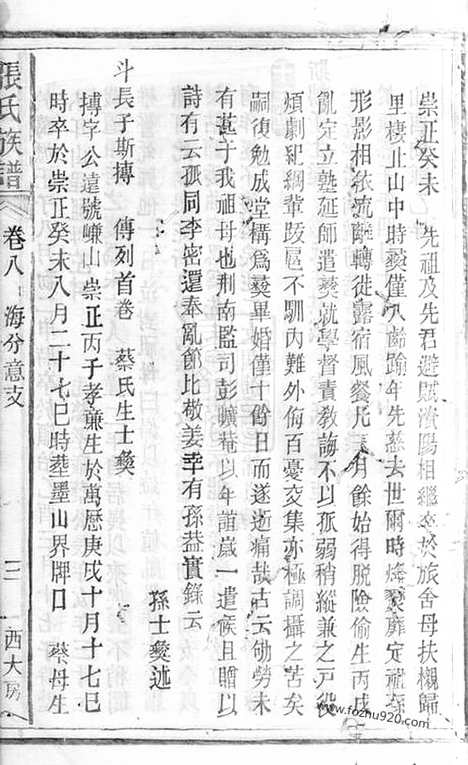 崇正癸未 先祖及先君避賊澬陽相繼卒於旅舍母扶櫬歸
里棲止山中時爕僅八齒踰年先慈去世爾時烽
形影相依流離轉徙露宿風餐凡月餘始得脫險偷生丙戌
亂定立塾延師遣爕就學督責教誨不以孤弱稍縱兼之戸役
煩劇紀綱輩跋扈不馴內難外侮百憂交集亦極調攝之苦矣
嗣復勉成堂搆為爕畢婚僅十餘日而遂逝痛哉古云劬勞未
有甚于我祖母也荆南監司彭曠菴以年誼歲一遣候且贈以
詩有云孤同李密還奉亂節比敬姜幸有孫益實錄云
孫士爕述
斗長子斯摶 傳列首卷 蔡氏生士爕
摶字公遠號嵰山崇正丙子孝亷生於萬厯庚戌十月十七巳
時卒於崇正癸未八月二十七巳時塟墨山界牌口 蔡母生
張氏族譜 卷八 海分意支 三 西大房
www.fozhu920.com